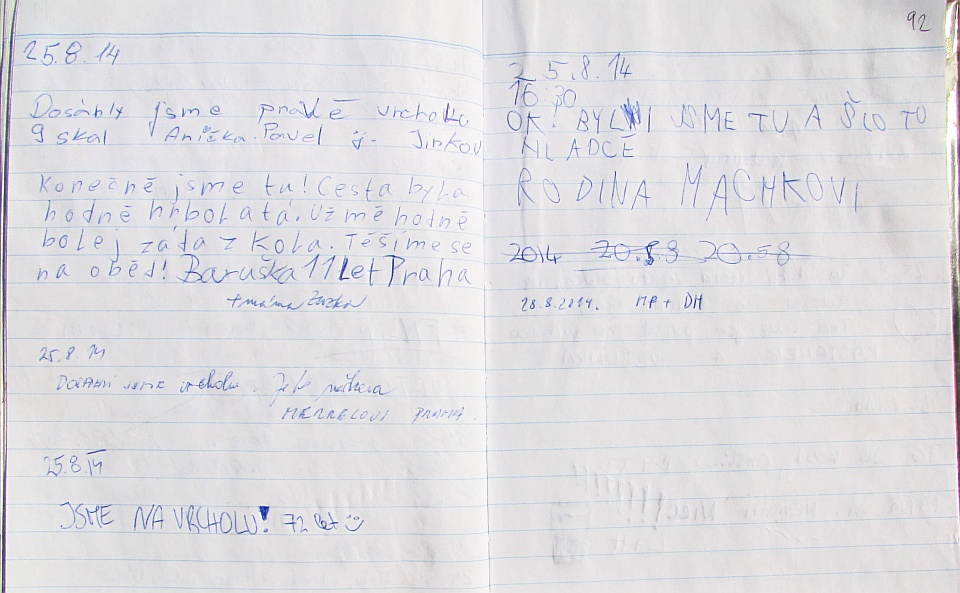 25.8.14
Dosáhly jsme právě vrcholku
9 skal Anička. Pavel j. Jirkov
Konečně jsme tu! Cesta byla
hodně hrbolatá. Už mě hodně
bolej záda z kola. Těšíme se
na oběd! Baruška 11 let Praha
+ máma Zuzka
25.8.14
jsme vrcholu.
25.8.14
JSME NA VRCHOLU! 72 let
92
25.8.14
16:30
OK! BYLI JSME TU A ŠLO TO
HLADCE
RODINA MACHKOVI
2014 20.58 20.58
28.8.2014. MP + DH